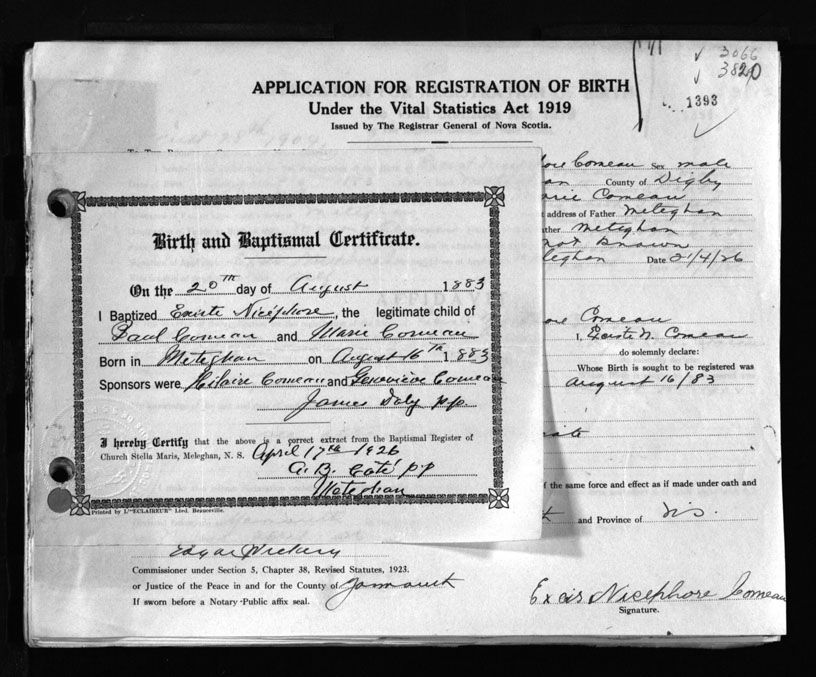 3066
3820
1393
APPLICATION FOR REGISTRATION OF BIRTH
Under the Vital Statistics Act 1919
Issued by The Registrar General of Nova Scotia.
Comeau Sex male
County of Digby
Comeau
address of Father Meteghan
Meteghan
not known
Date 21/4/26
Birth and Baptismal Certificate.
On the 20TH day of August 1883
I Baptized Nicéphore, the legitimate child of
Paul Comeau and Marie Comeau
Born in Meteghan on August 16TH 1883
Sponsors were Hilaire Comeau and Geneviève Comeau
James Daly pp.
I hereby Certify that the above is a correct extract from the Baptismal Register of
Church Stella Maris, Meteghan, N. S. April 17th 1926
A. B. Coté pp
Meteghan
Printed by L'"ECLAIREUR" Ltd. Beauceville.
Comeau
I, N. Comeau
do solemnly declare:
Whose Birth is sought to be registered was
August 16/83
of the same force and effect as if made under oath and
and Province of N.S.
Edgar
Commissioner under Section 5, Chapter 38, Revised Statutes, 1923.
or Justice of the Peace in and for the County of Yarmouth
If sworn before a Notary Public affix seal.
Nicephore Comeau
Signature.